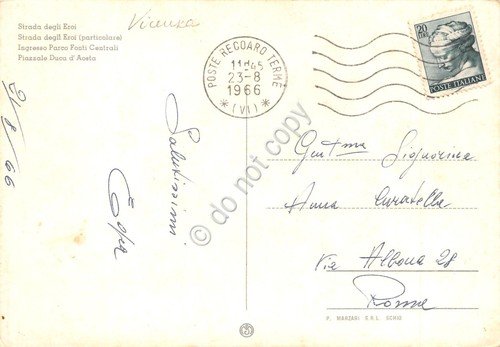 Vicenza
Strada degli Eroi
Strada degli Eroi (particolare)
Ingresso Parco Fonti Centrali
Piazzale Duca d'Aosta
POSTE RECOARO TERME
11-45
23-8
1966
* (VI) *
POSTE ITALIANE
21/8/66
Salutissimi
Gent.ma Signorina
Anna
Via Albona 28
Roma
P. MARZARI S.R.L. SCHIO
© do not copy